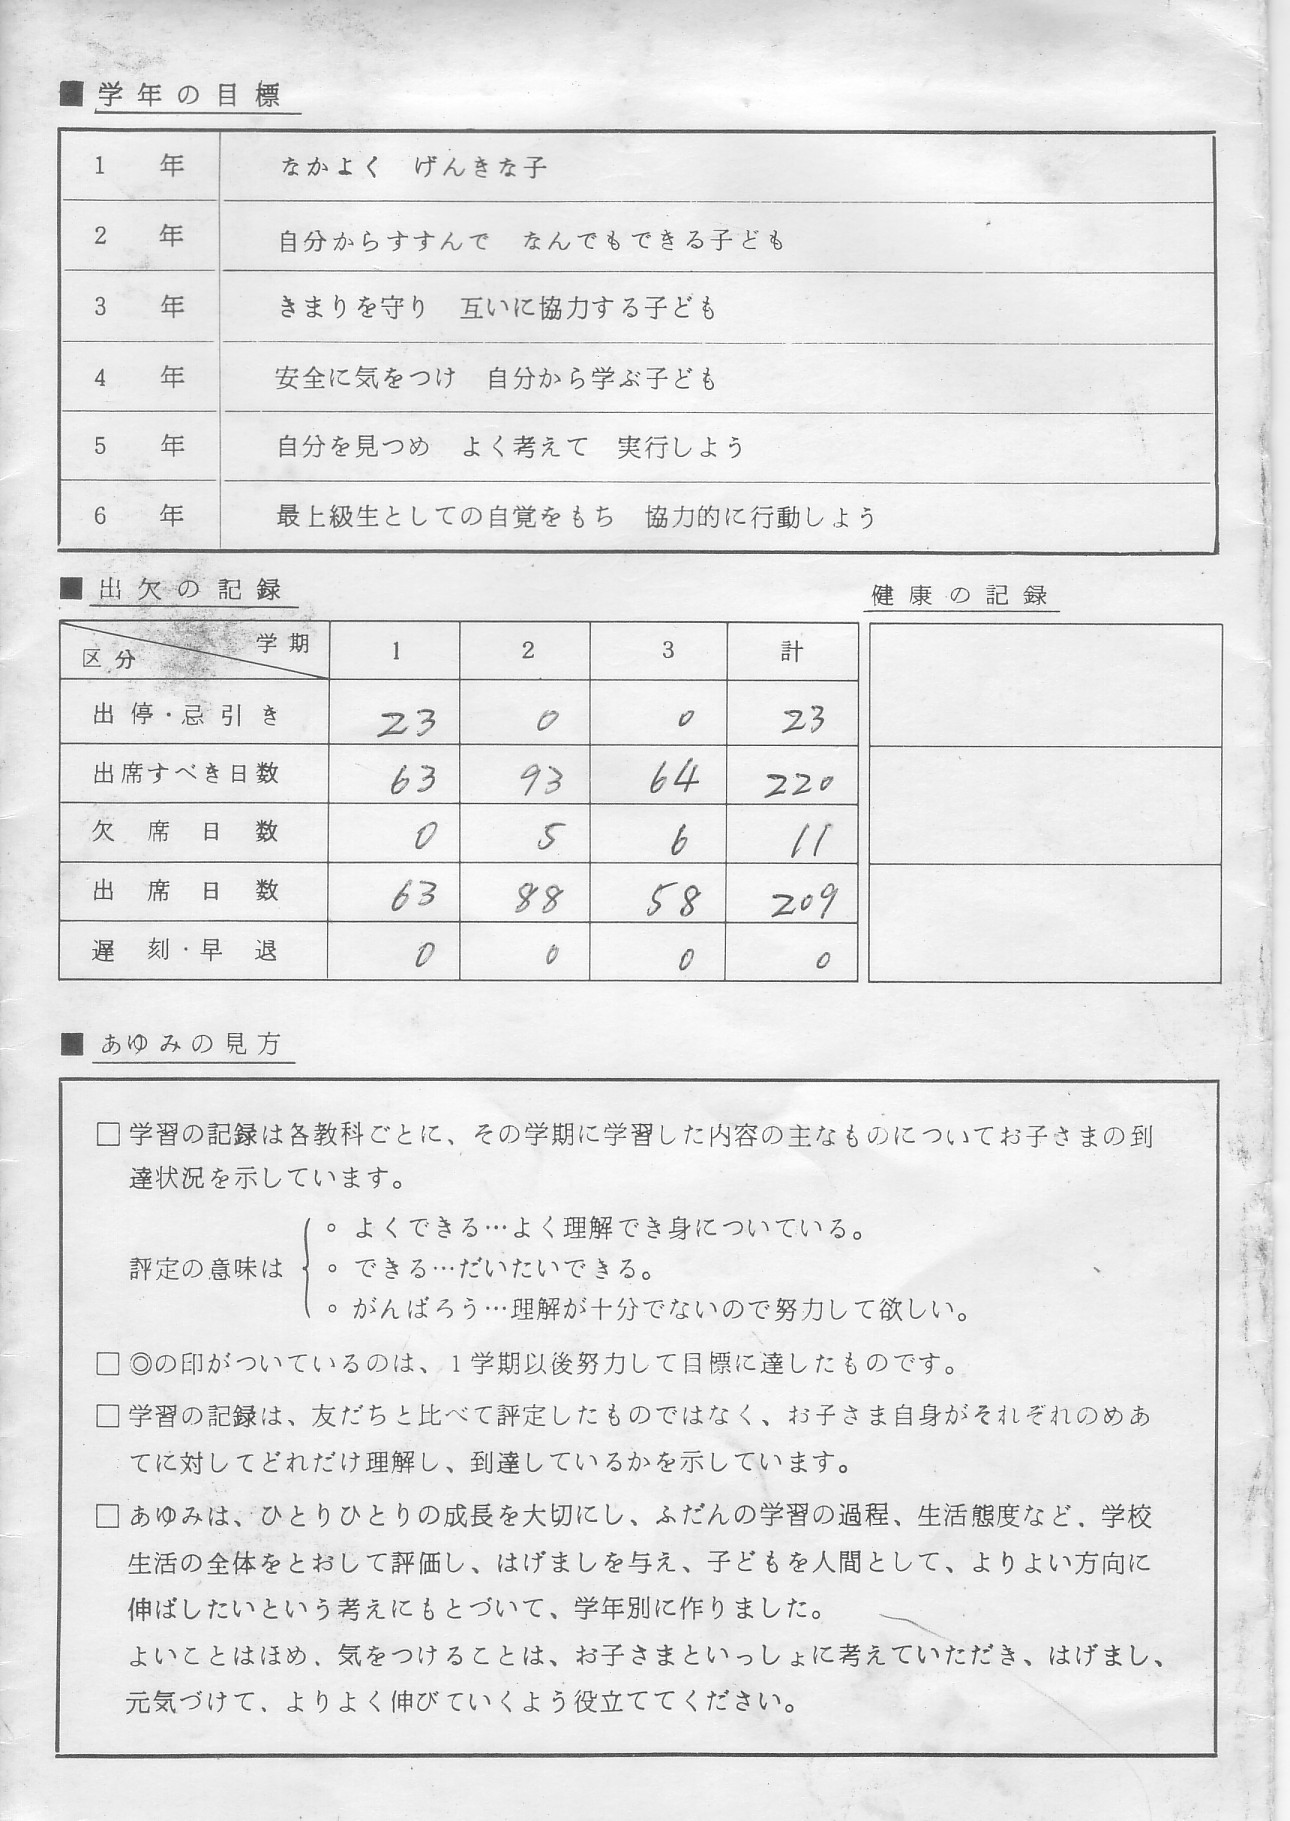 ■学年の目標
1 年 なかよく げんきな子
2 年 自分からすすんで なんでもできる子ども
3 年 きまりを守り 互いに協力する子ども
4 年 安全に気をつけ 自分から学ぶ子ども
5 年 自分を見つめ よく考えて 実行しよう
6 年 最上級生としての自覚をもち 協力的に行動しよう
■出欠の記録
健康の記録
学期 1 2 3 計
区分
出停・忌引き 23 0 0 23
出席すべき日数 63 93 64 220
欠席日数 0 5 6 11
出席日数 63 88 58 209
遅刻・早退 0 0 0 0
■あゆみの見方
□学習の記録は各教科ごとに、その学期に学習した内容の主なものについてお子さまの到
達状況を示しています。
。よくできる…よく理解でき身についている。
評定の意味は 。できる…だいたいできる。
。がんばろう…理解が十分でないので努力して欲しい。
□◎の印がついているのは、1学期以後努力して目標に達したものです。
□学習の記録は、友だちと比べて評定したものではなく、お子さま自身がそれぞれのめあ
てに対してどれだけ理解し、到達しているかを示しています。
□あゆみは、ひとりひとりの成長を大切にし、ふだんの学習の過程、生活態度など、学校
生活の全体をとおして評価し、はげましを与え、子どもを人間として、よりよい方向に
伸ばしたいという考えにもとづいて、学年別に作りました。
よいことはほめ、気をつけることは、お子さまといっしょに考えていただき、はげまし、
元気づけて、よりよく伸びていくよう役立ててください。